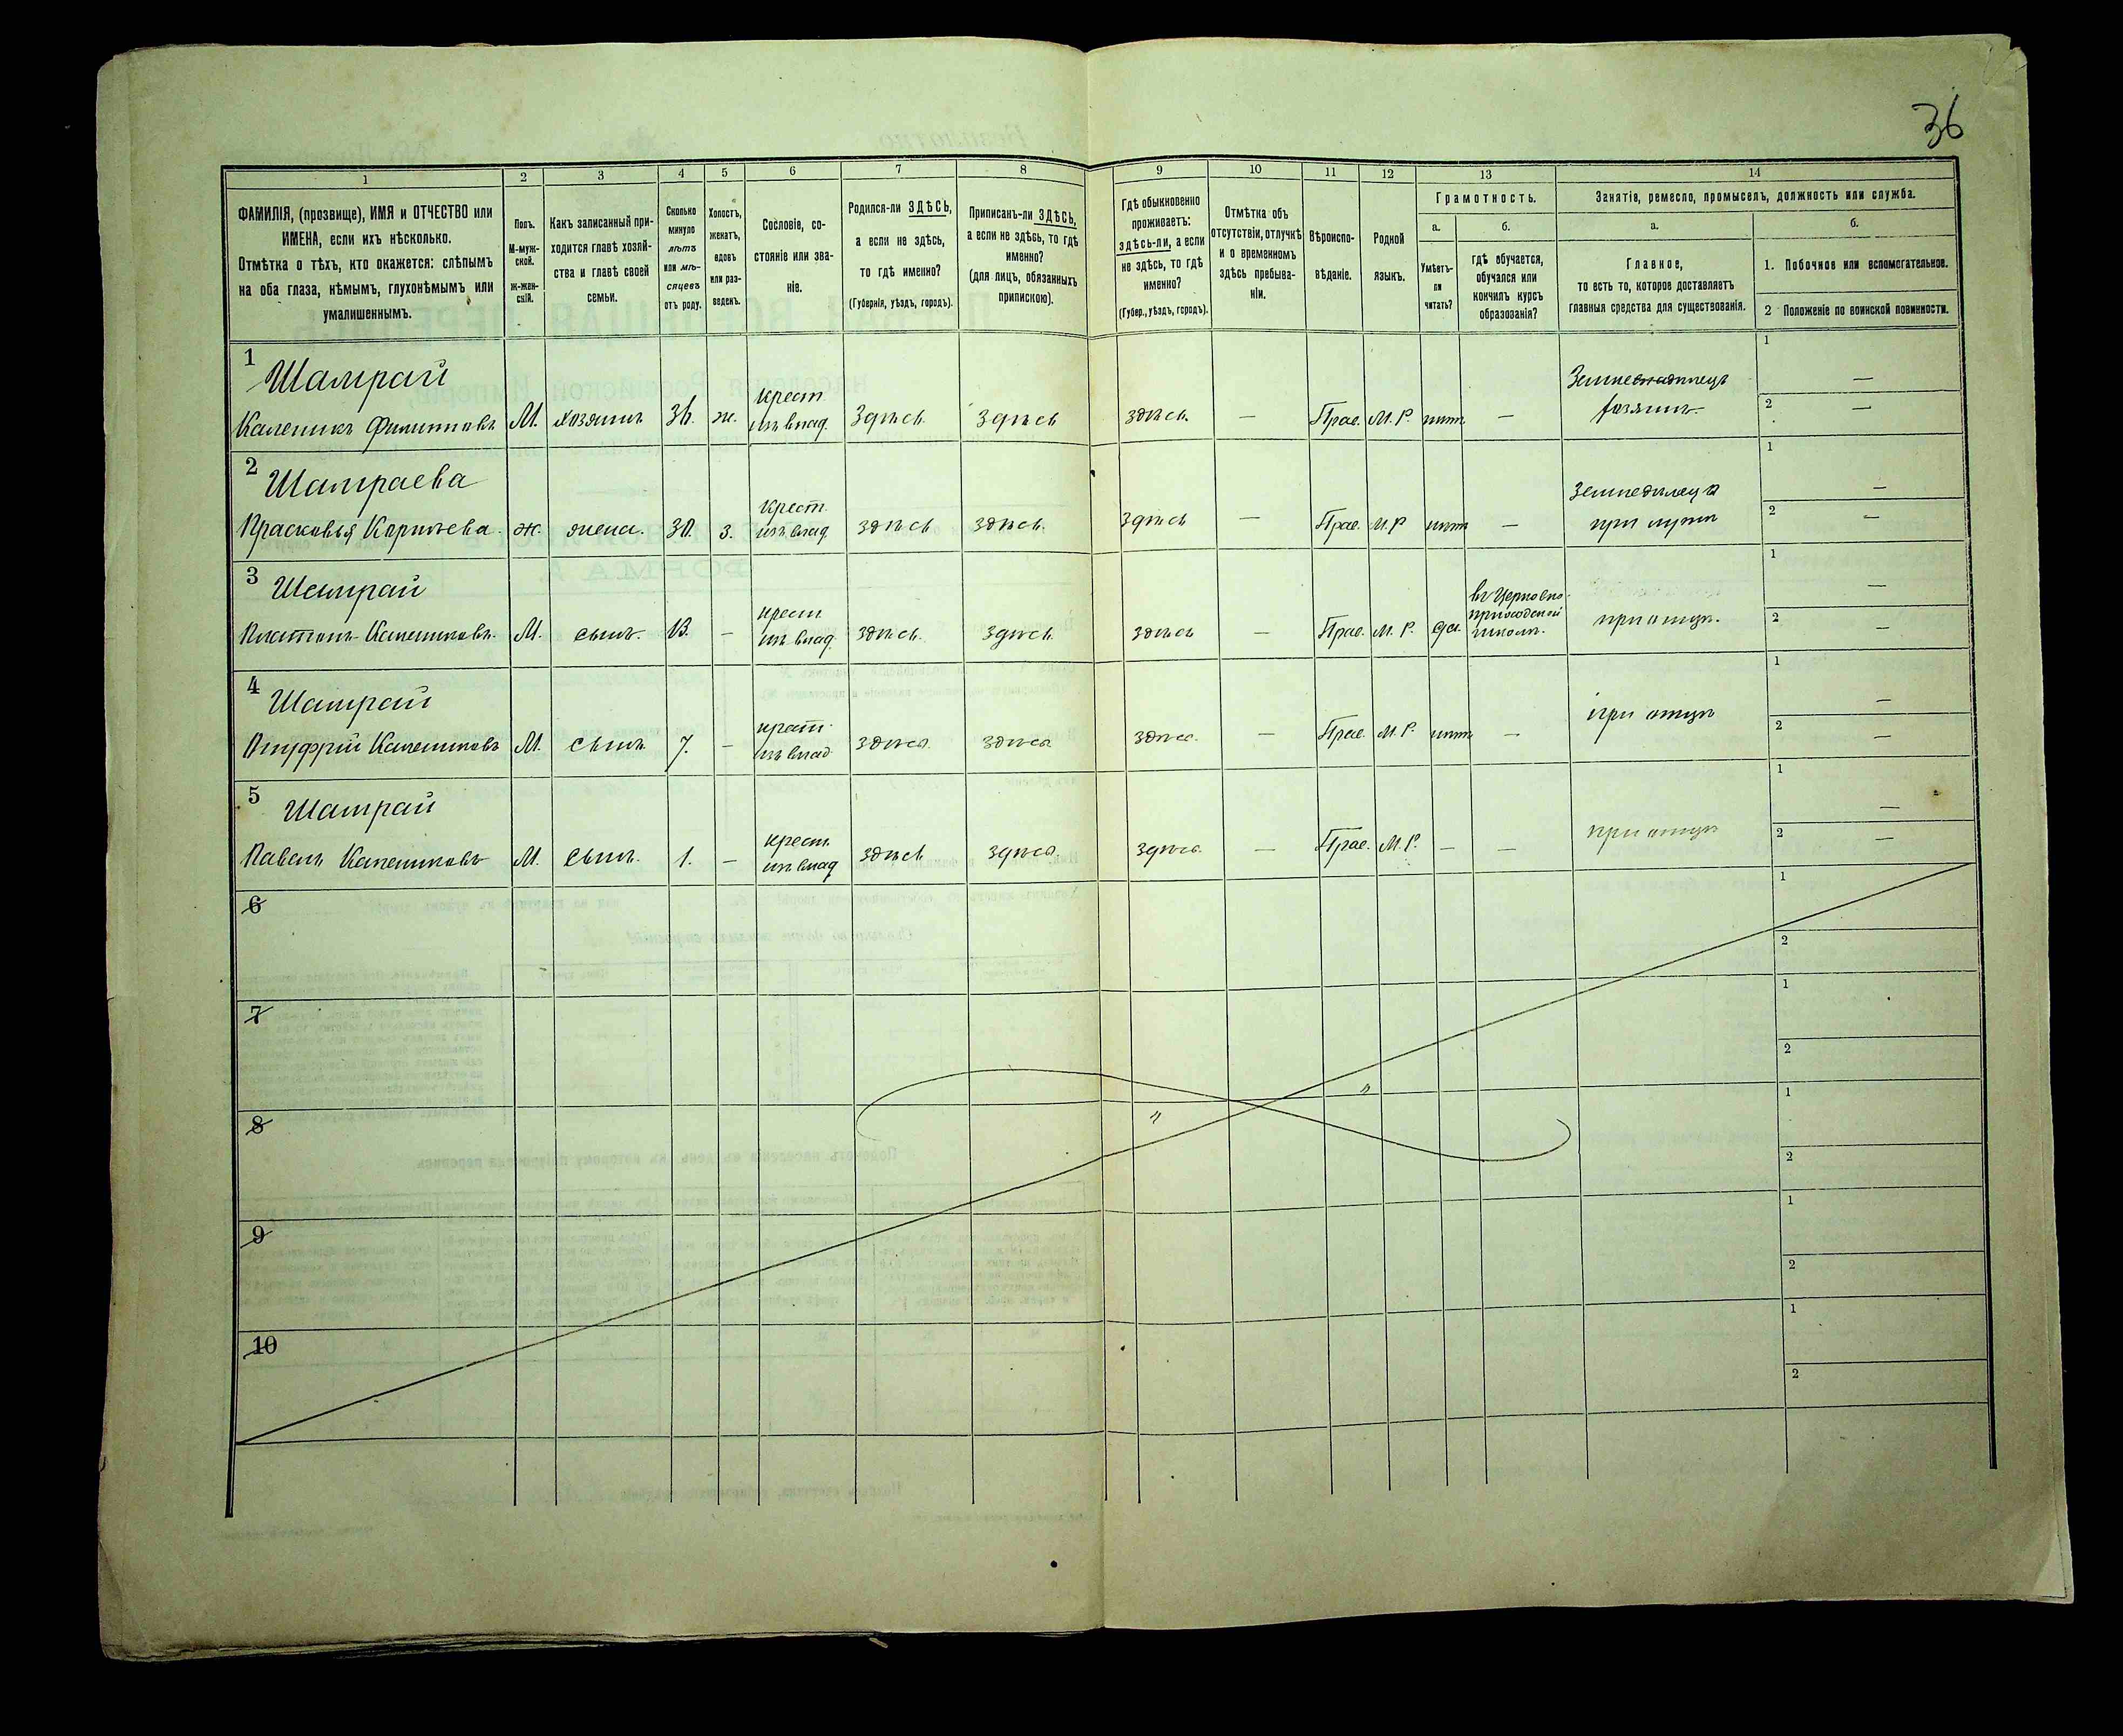 36
1
2
3
4
5
6
7
8
9
10
11
12
13
14
ФАМИЛІЯ, (прозвище), ИМЯ и ОТЧЕСТВО или
ИМЕНА, если ихъ нѣсколько.
Отмѣтка о тѣхъ, кто окажется: слѣпымъ
на оба глаза, нѣмымъ, глухонѣмымъ или
умалишеннымъ.
Полъ.
М-муж-
ской.
ж-жен-
скій.
Какъ записанный при-
ходится главѣ хозяй-
ства и главѣ своей
семьи.
Сколько
минуло
лѣтъ
или мѣ-
сяцевъ
отъ роду.
Холостъ,
женатъ,
вдовъ
или раз-
веденъ.
Сословіе, со-
стояніе или зва-
ніе.
Родился-ли ЗДѢСЬ,
а если не здѣсь,
то гдѣ именно?
(Губернія, уѣздъ, городъ).
Приписанъ-ли ЗДѢСЬ,
а если не здѣсь, то гдѣ
именно?
(для лицъ, обязанныхъ
припискою).
Гдѣ обыкновенно
проживаетъ:
здѣсь-ли, а если
не здѣсь, то гдѣ
именно?
(Губер., уѣздъ, городъ).
Отмѣтка объ
отсутствіи, отлучкѣ
и о временномъ
здѣсь пребыва-
ніи.
Вѣроиспо-
вѣданіе.
Родной
языкъ.
Грамотность.
а.
Умѣетъ-
ли
читать?
б.
гдѣ обучается,
обучался или
кончилъ курсъ
образованія?
Занятіе, ремесло, промыселъ, должность или служба.
а.
Главное,
то есть то, которое доставляетъ
главныя средства для существованія.
б.
1. Побочное или вспомогательное.
2 Положеніе по воинской повинности.
1 Шамрай
Каленикъ Филиповъ М. хозяинъ 36. ж. крест. изъ влад. Здѣсь Здѣсь здѣсь. — Прав. М. Р. нѣтъ — Землевладѣлецъ хозяинъ 1 — 2 —
2 Шамраева
Прасковья Корнѣева. ж. жена. 30. з. Крест. изъ влад. здѣсь здѣсь. здѣсь — Прав. М. Р нѣтъ — 1 — 2 —
3 Шамрай
Платонъ Калениковъ. М. сынъ. 13. — крест. изъ влад. здѣсь. здѣсь. здѣсь — Прав. М. Р. да. въ Церковно-приходской школѣ. при отцѣ. 1 — 2 —
4 Шамрай
Онуфрій Калениковъ М. сынъ 7. — крест. изъ влад. здѣсь. здѣсь здѣсь. — Прав. М. Р. нѣтъ — при отцѣ 1 — 2 —
5 Шамрай
Павелъ Калениковъ М. сынъ. 1. — крест. изъ влад здѣсь здѣсь здѣсь. — Прав. М. Р. — — при отцѣ 1 — 2 —
6 1 2
7 1 2
8 1 2
9 1 2
10 1 2